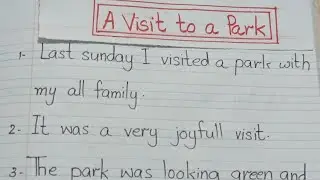 A Visit to a Park
1- Last sunday I visited a park with
my all family.
2- It was a very joyfull visit.
3- The park was looking green and